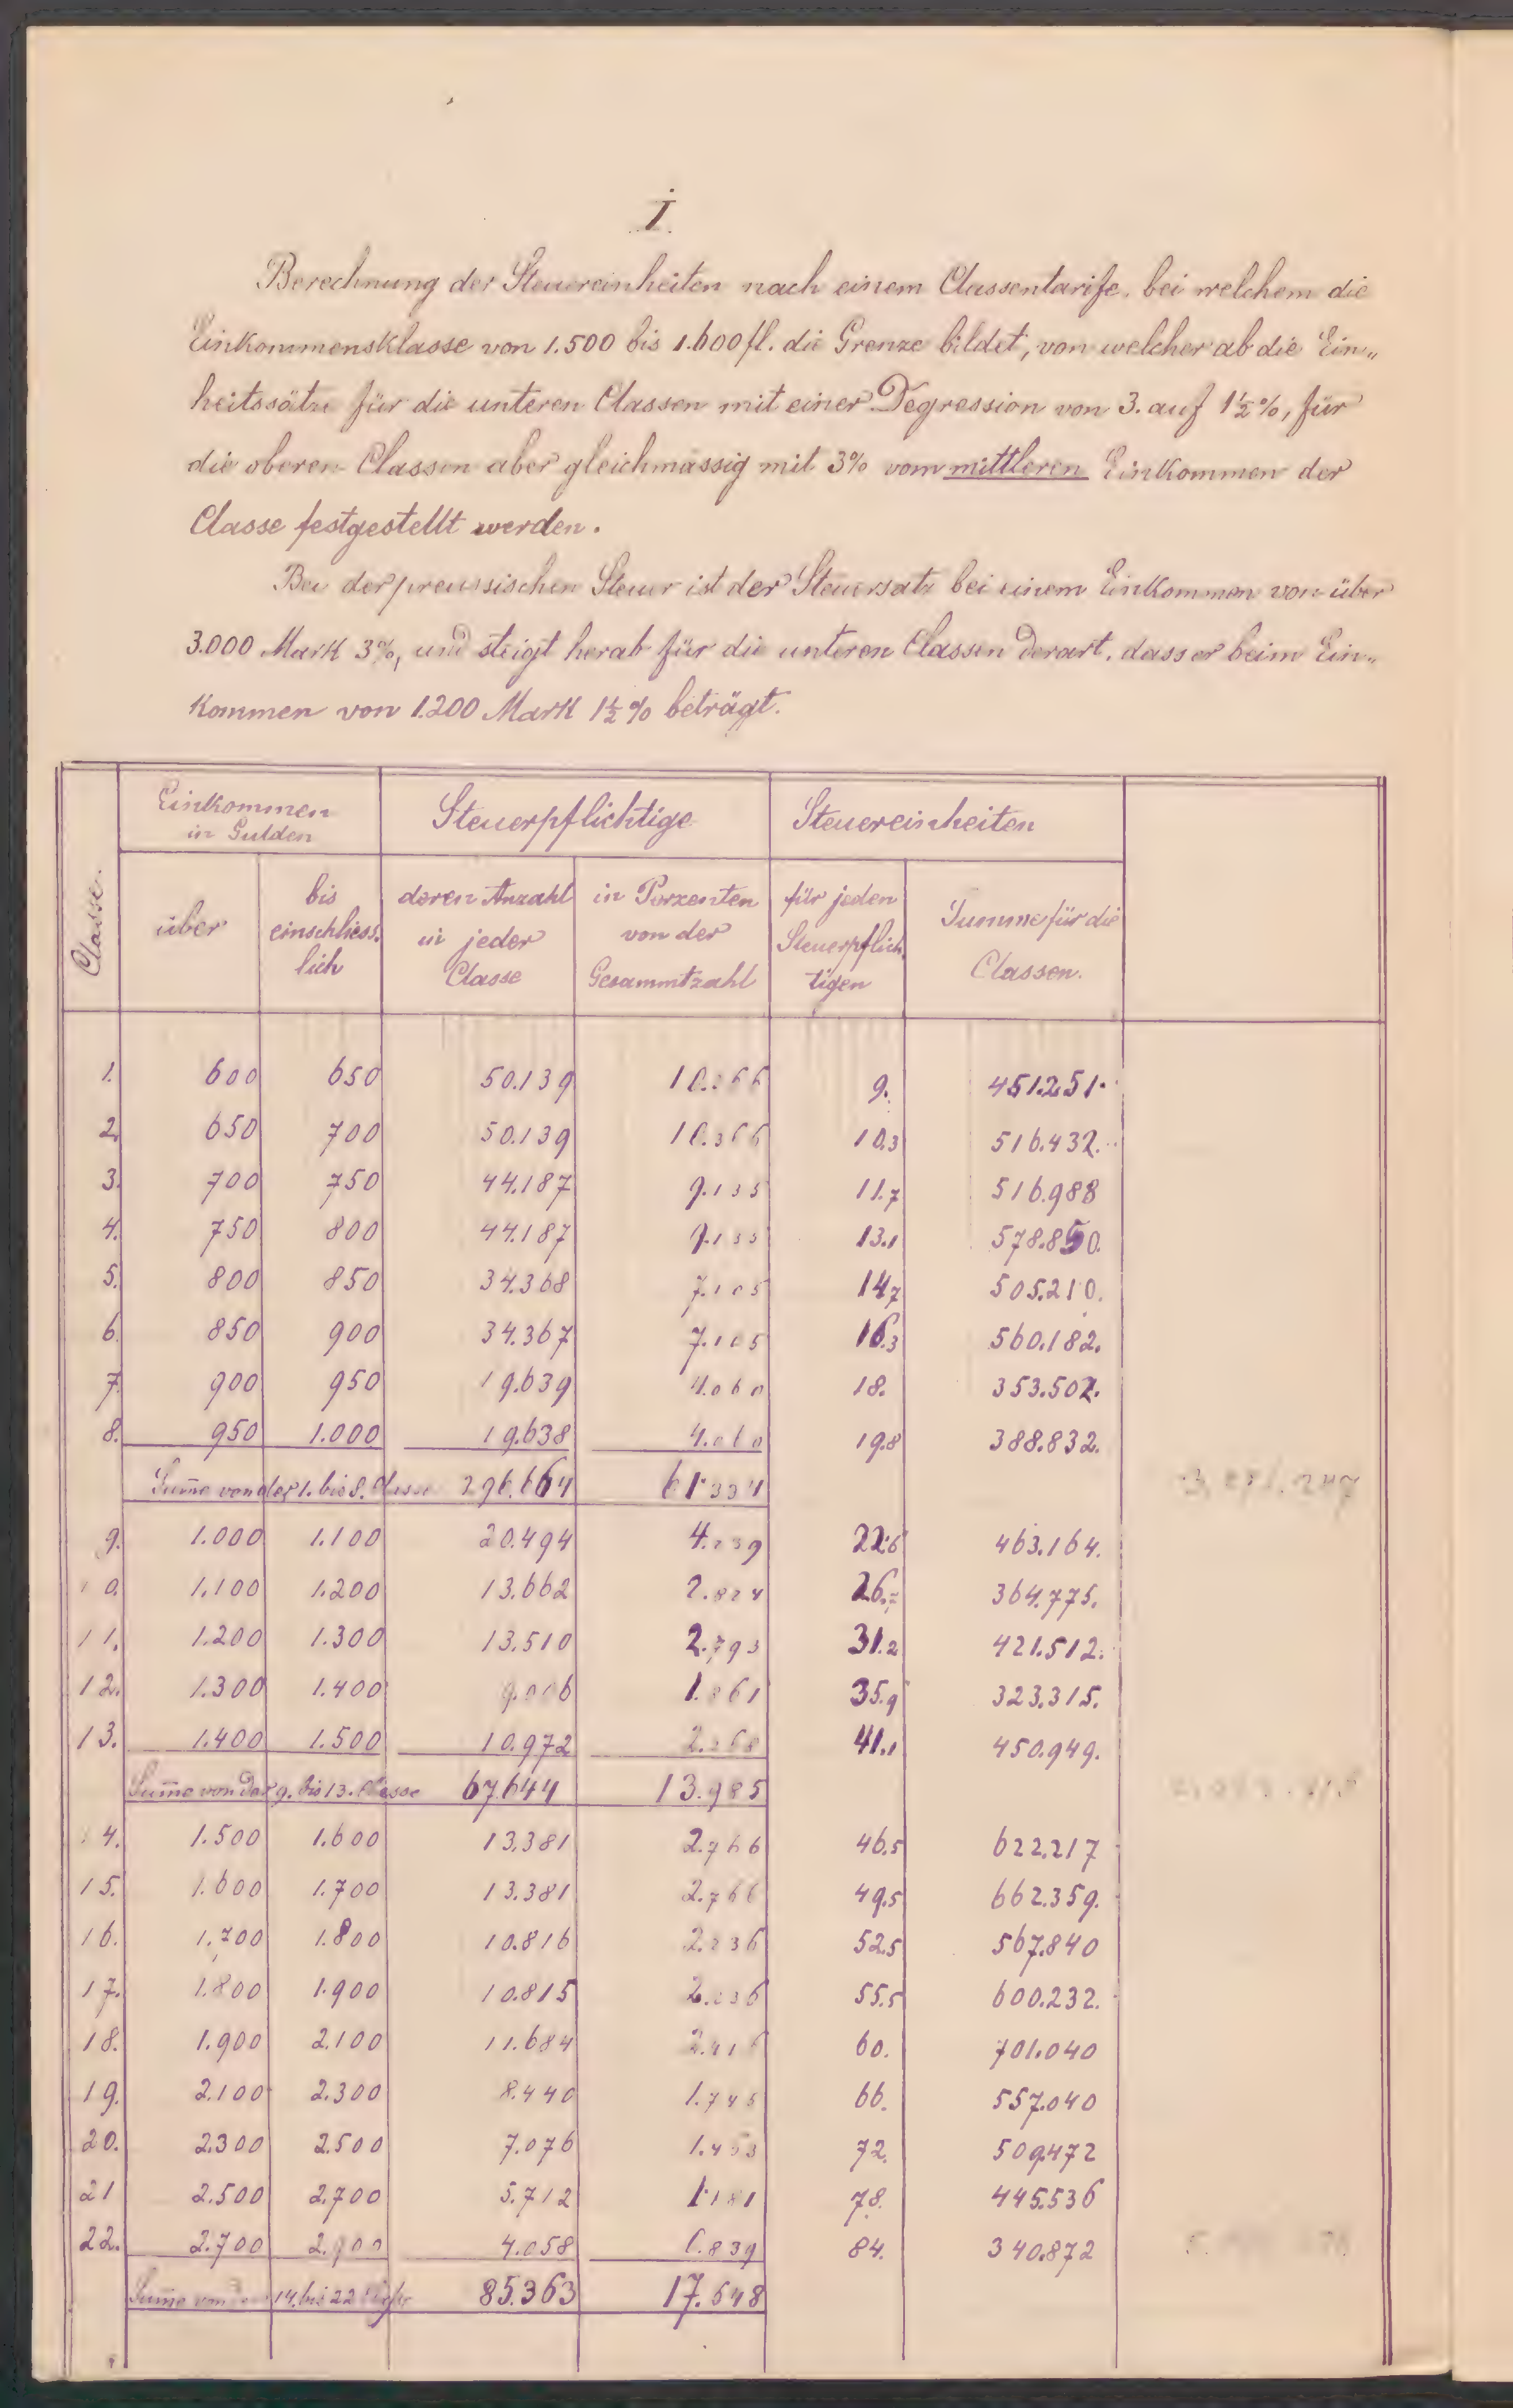 I.
Berechnung der Steuereinheiten nach einem Classentarife, bei welchem die
Einkommensklasse von 1.500 bis 1.600 fl. die Grenze bildet, von welcher ab die Ein„
heitssätze für die unteren Classen mit einer Degression von 3. auf 1½%, für
die oberen Classen aber gleichmässig mit 3% vom mittleren Einkommen der
Classe festgestellt werden.
Bei der preussischen Steuer ist der Steuersatz bei einem Einkommen von über
3.000 Mark 3%, und steigt herab für die unteren Classen derart, dass er beim Ein„
kommen von 1.200 Mark 1½% beträgt.
Classe. Einkommen in Gulden Steuerpflichtige Steuereinheiten
über bis einschliess. lich deren Anzahl in jeder Classe in Perzenten von der Gesammtzahl für jeden Steuerpflich. tigen Summe für die Classen.
1. 600 650 50.139 9. 451.251.
2. 650 700 50.139 10.366 10.3 516.432.
3. 700 750 44.187 9.135 11.7 516.988
4. 750 800 44.187 9.135 13.1 578.850.
5. 800 850 34.368 7.105 14.7 505.210.
6. 850 900 34.367 7.105 16.3 560.182.
7. 900 950 19.639 4.060 18. 353.502.
8. 950 1.000 19.638 4.060 19.8 388.832.
Summe von der 1. bis 8. Classe 296.664
9. 1.000 1.100 20.494 22.6 463.164.
10. 1.100 1.200 13.662 2.824 364.775.
11. 1.200 1.300 13.510 2.793 31.2 421.512.
12. 1.300 1.400 9.006 1.861 35.9 323.315.
13. 1.400 1.500 10.972 2.268 41.1 450.949.
Summe von der 9. bis 13. Classe 67.644 13.985
14. 1.500 1.600 13.381 2.766 46.5 622.217
15. 1.600 1.700 13.381 2.766 49.5 662.359.
16. 1.700 1.800 10.816 2.236 52.5 567.840
17. 1.800 1.900 10.815 2.236 55.5 600.232.
18. 1.900 2.100 11.684 60. 701.040
19. 2.100 2.300 8.440 1.745 66. 557.040
20. 2.300 2.500 7.076 72. 509.472
21 2.500 2.700 5.712 1.181 78. 445.536
22. 2.700 2.900 4.058 0.839 84. 340.872
14. bis 22 85.363 17.648